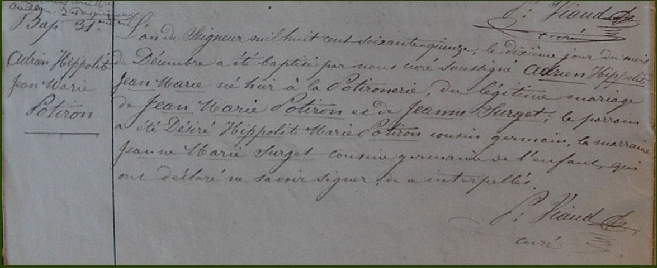 Bap 31e
Adrien Hippolite
Jean Marie
Potiron
P. Viaud
curé
L'an du Seigneur mil huit cent soixante-quinze, le dixième jour du mois
de Décembre a été baptisé par nous curé soussigné Adrien Hippolite
Jean Marie né hier à la Potironerie, du légitime mariage
de Jean Marie Potiron et de Jeanne Surget; le parrain
a été Désiré Hippolite Marie Potiron cousin germain, la marraine
Jeanne Marie Surget cousine germaine de l'enfant, qui
ont déclaré ne savoir signer, de ce interpellés.
P. Viaud
curé